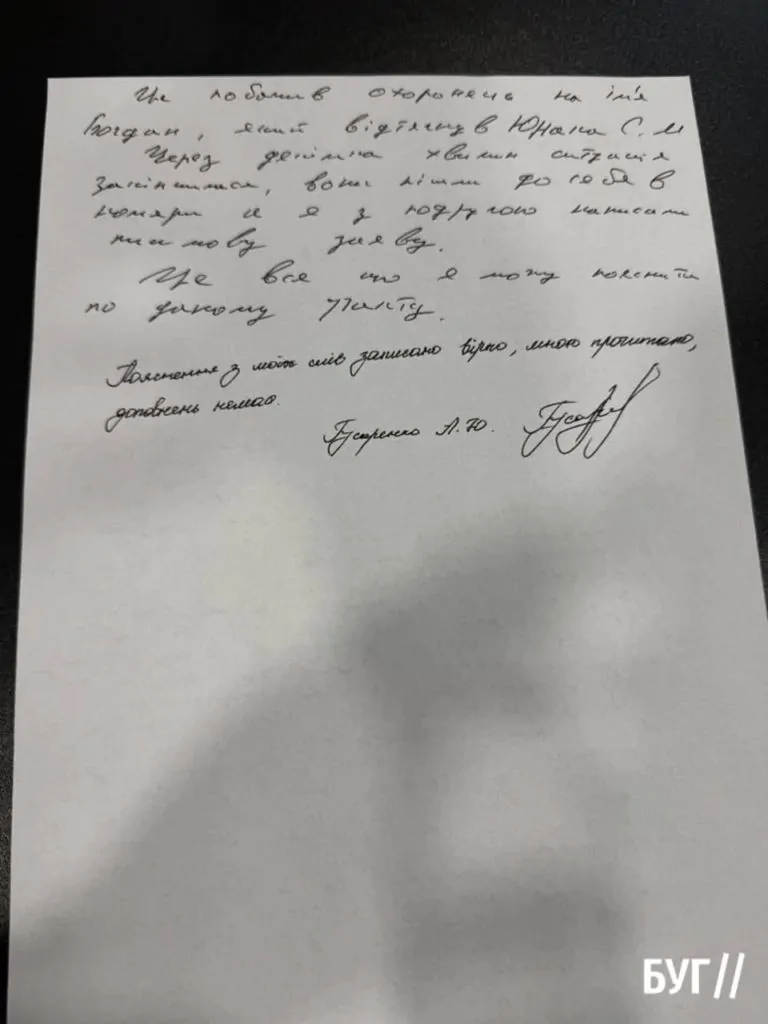 Це побачив охоронець на ім'я
Богдан, який відтягнув Юнака С.М
Через декілька хвилин ситуація
закінчилася, вони пішли до себе в
номери а я з подругою написали
письмову заяву.
Це все що я можу пояснити
по даному факту.
Пояснення з моїх слів записано вірно, мною прочитано,
доповнень немає.
Гусаренко А.Ю.
БУГ//